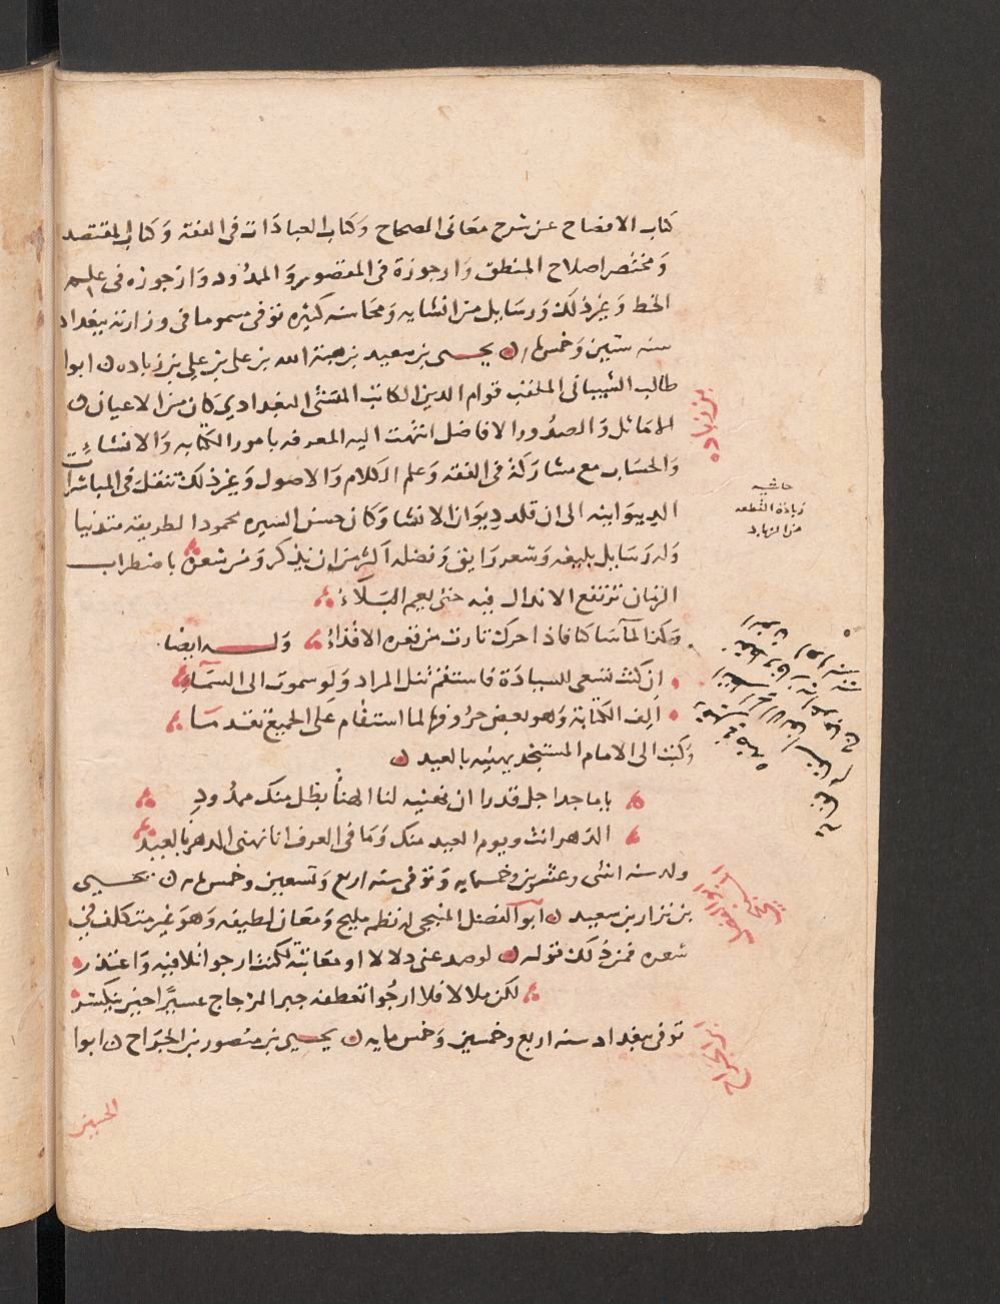 كتاب الافصاح عن شرح معانى الصحاح وكتاب العبادات فى الفقه وكتاب المقتصد
ومختصر اصلاح المنطق وارجوزة فى المقصور والممدود وارجوزه فى علم
الخط وغير ذلك ورسايل من انشايه ومحاسنه كثيره توفى مسموما فى وزارته ببغداد
سنه ستين وخمسمايه يحيى بن سعيد بن هبة الله بن على بن على بن زباده ابوا
طالب الشيبانى الملقب قوام الدين الكاتب المنشى البغدادي كان من الاعيان
الاماثل والصدور الافاضل انتهت اليه المعرفه بامور الكتابه والانشاء
والحساب مع مشاركة فى الفقه وعلم الكلام والاصول وغير ذلك تنقل فى المباشرات
الديوانيه الى ان قلد ديوان الانشا وكان حسن السيره محمود الطريقه متدينا
وله رسايل بليغه وشعر رايق وفضله اكثر من ان يذكر ومن شعره باضطراب
الزمان ترتفع الاندال فيه حتى يعم البلاء
وكذا الماء ساكنا فاذا حرك ثارت من قعره الاقذاء وله ايضا
ان كنت تسعى للسيادة فاستقم تنل المراد ولو سموت الى السماء
الف الكتابة وهو بعض حروفها لما استقام على الجميع تقدما
وكتب الى الامام المستنجد يهنيه بالعيد
يا ماجدا جل قدرا ان نهنيه لنا الهنأ بظل منك ممدود
الدهر انت ويوم العيد منك وما فى العرف انا نهنى الدهر بالعيد
ولد سنه اثنى وعشرين وخمسمايه وتوفى سنه اربع وتسعين وخمسمايه يحيى
بن نزار بن سعيد ابو الفضل المنبجى له نظم مليح ومعان لطيفه وهو غير متكلف فى
شعره فمن ذلك قوله لو صد عنى دلالا او معاتبة لكنت ارجوا تلافيه واعتذر
لكن ملالا فلا ارجوا تعطفه جبر الزجاج عسير حين ينكسر
توفى ببغداد سنه اربع وخمسين وخمسمايه يحيى بن منصور بن الجراح ابوا
الحسين
بن زباده
حاشيه
زبادة القطعه
من الزباد
ابن الجراح